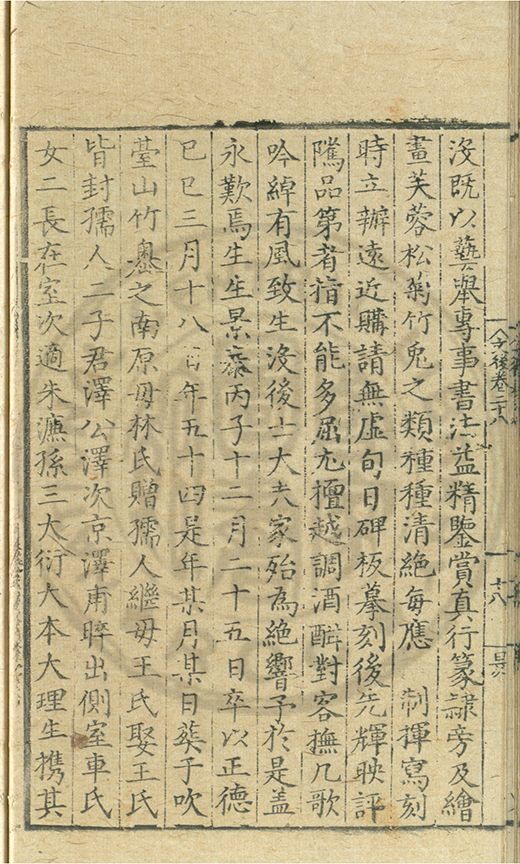 沒既以藝舉專事書法益精鑒賞真行篆隷旁及繪
畫芙蓉松菊竹兎之類種種清絕每應 制揮寫刻
時立辦遠近購請無虛旬日碑板摹刻後先輝映評
隲品第者指不能多屈尤擅越調酒酣對客撫几歌
吟綽有風致生沒後士大夫家殆為絕響予於是盖
永歎焉生生景泰丙子十二月二十五日卒以正德
己巳三月十八日年五十四是年某月某日葬于吹
臺山竹嶴之南原母林氏贈孺人繼母王氏娶王氏
皆封孺人二子君澤公澤次京澤甫晬出側室車氏
女二長在室次適朱濂孫三大衍大本大理生携其
今後卷二十八
十八